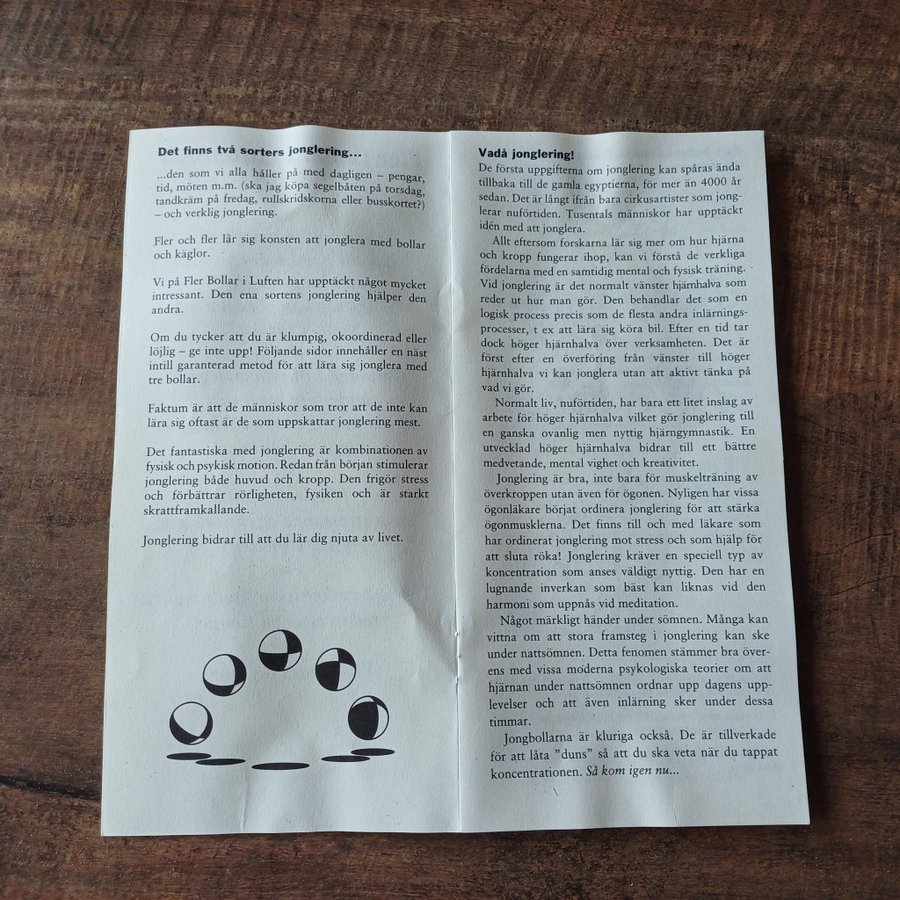 Det finns två sorters jonglering...
...den som vi alla håller på med dagligen – pengar,
tid, möten m.m. (ska jag köpa segelbåten på torsdag,
tandkräm på fredag, rullskridskorna eller busskortet?)
– och verklig jonglering.
Fler och fler lär sig konsten att jonglera med bollar
och käglor.
Vi på Fler Bollar i Luften har upptäckt något mycket
intressant. Den ena sortens jonglering hjälper den
andra.
Om du tycker att du är klumpig, okoordinerad eller
löjlig – ge inte upp! Följande sidor innehåller en näst
intill garanterad metod för att lära sig jonglera med
tre bollar.
Faktum är att de människor som tror att de inte kan
lära sig oftast är de som uppskattar jonglering mest.
Det fantastiska med jonglering är kombinationen av
fysisk och psykisk motion. Redan från början stimulerar
jonglering både huvud och kropp. Den frigör stress
och förbättrar rörligheten, fysiken och är starkt
skrattframkallande.
Jonglering bidrar till att du lär dig njuta av livet.
Vadå jonglering!
De första uppgifterna om jonglering kan spåras ända
tillbaka till de gamla egyptierna, för mer än 4000 år
sedan. Det är långt ifrån bara cirkusartister som jong-
lerar nuförtiden. Tusentals människor har upptäckt
idén med att jonglera.
Allt eftersom forskarna lär sig mer om hur hjärna
och kropp fungerar ihop, kan vi förstå de verkliga
fördelarna med en samtidig mental och fysisk träning.
Vid jonglering är det normalt vänster hjärnhalva som
reder ut hur man gör. Den behandlar det som en
logisk process precis som de flesta andra inlärnings-
processer, t ex att lära sig köra bil. Efter en tid tar
dock höger hjärnhalva över verksamheten. Det är
först efter en överföring från vänster till höger
hjärnhalva vi kan jonglera utan att aktivt tänka på
vad vi gör.
Normalt liv, nuförtiden, har bara ett litet inslag av
arbete för höger hjärnhalva vilket gör jonglering till
en ganska ovanlig men nyttig hjärngymnastik. En
utvecklad höger hjärnhalva bidrar till ett bättre
medvetande, mental vighet och kreativitet.
Jonglering är bra, inte bara för muskelträning av
överkroppen utan även för ögonen. Nyligen har vissa
ögonläkare börjat ordinera jonglering för att stärka
ögonmusklerna. Det finns till och med läkare som
har ordinerat jonglering mot stress och som hjälp för
att sluta röka! Jonglering kräver en speciell typ av
koncentration som anses väldigt nyttig. Den har en
lugnande inverkan som bäst kan liknas vid den
harmoni som uppnås vid meditation.
Något märkligt händer under sömnen. Många kan
vittna om att stora framsteg i jonglering kan ske
under nattsömnen. Detta fenomen stämmer bra över-
ens med vissa moderna psykologiska teorier om att
hjärnan under nattsömnen ordnar upp dagens upp-
levelser och att även inlärning sker under dessa
timmar.
Jongbollarna är kluriga också. De är tillverkade
för att låta "duns" så att du ska veta när du tappat
koncentrationen. Så kom igen nu...